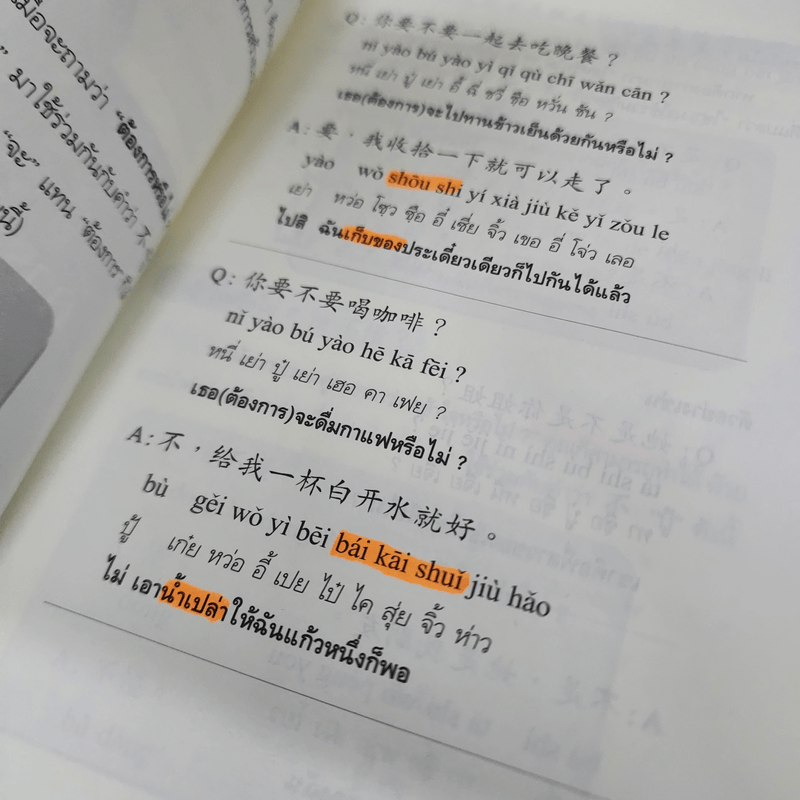 มื่อจะถามว่า "ต้องการหรือไ
" มาใช้ร่วมกันกับคำว่า 不
"จะ" แทน "ต้องการ"
นี้)
Q: 你要不要一起去吃晚餐？
nǐ yào bú yào yì qǐ qù chī wǎn cān ?
หนี่ เย่า ปู๋ เย่า อี้ ฉี่ ชวี่ ชือ หวั่น ชัน ?
เธอ(ต้องการ)จะไปทานข้าวเย็นด้วยกันหรือไม่ ?
A: 要，我收拾一下就可以走了。
yào wǒ shōu shi yí xià jiù kě yǐ zǒu le
เย่า หว่อ โชว ชือ อี๋ เซี่ย จิ้ว เขอ อี่ โจ่ว เลอ
ไปสิ ฉันเก็บของประเดี๋ยวเดียวก็ไปกันได้แล้ว
Q: 你要不要喝咖啡？
nǐ yào bú yào hē kā fēi ?
หนี่ เย่า ปู๋ เย่า เฮอ คา เฟย ?
เธอ(ต้องการ)จะดื่มกาแฟหรือไม่ ?
A: 不，给我一杯白开水就好。
bù gěi wǒ yì bēi bái kāi shuǐ jiù hǎo
ปู้ เก๋ย หว่อ อี้ เปย ไป๋ ไค สุ่ย จิ้ว ห่าว
ไม่ เอาน้ำเปล่าให้ฉันแก้วหนึ่งก็พอ